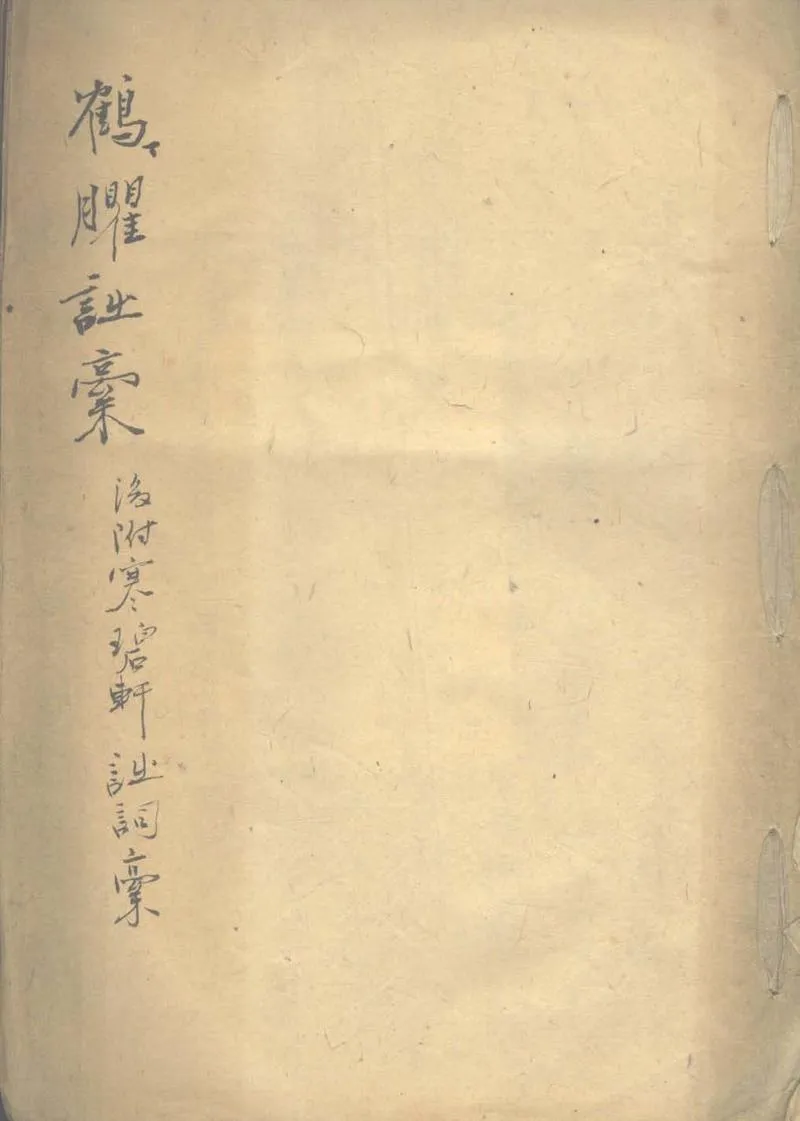 鶴臞詩稾
後附寒碧軒詩詞稾